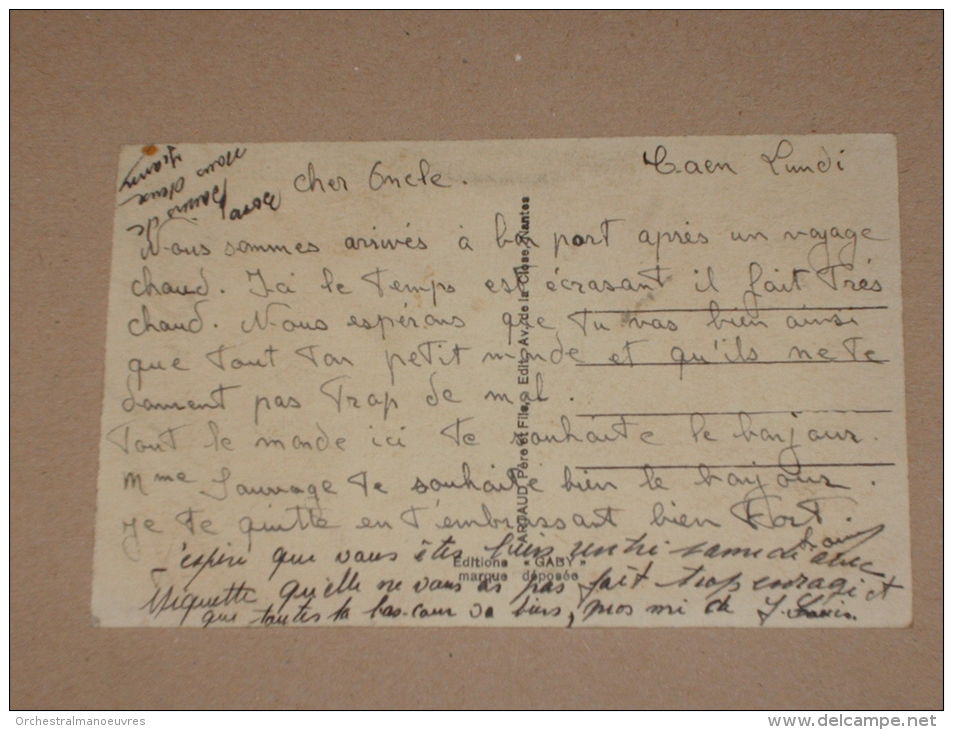 Caen Lundi
Cher Oncle.
Nous sommes arrivés à bon port après un voyage
chaud. Ici le temps est écrasant il fait très
chaud. Nous espérons que tu vas bien ainsi
que tout ton petit monde et qu'ils ne te
donnent pas trop de mal.
Tout le monde ici te souhaite le bonjour.
Mme Sauvage te souhaite bien le bonjour.
Je te quitte en t'embrassant bien fort.
j'espére que vous êtes bien rentré samedi avec
Miquette qu'elle ne vous as pas fait trop enragé et
que toutes la bas-cour va bien,
Bons Baisers de
nous deux
ARTAUD Père et Fils, Edit., Av. de la Close, Nantes
Editions "GABY"
marque déposée
Orchestralmanoeuvres
www.delcampe.net